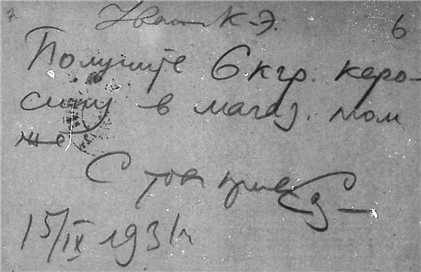 Иван К-Э. 6
Получите 6 кгр. керо-
сину в магаз. том
же
С тов. прив.
15/IX 1931 г.